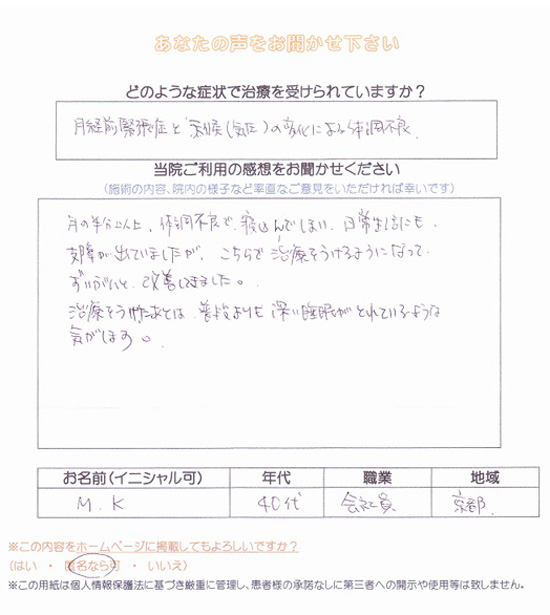 あなたの声をお聞かせ下さい
どのような症状で治療を受けられていますか？
月経前緊張症と天候(気圧)の変化による体調不良.
当院ご利用の感想をお聞かせください
(施術の内容、院内の様子など率直なご意見をいただければ幸いです)
月の半分以上、体調不良で、寝込んでしまい、日常生活にも、
支障が出ていましたが、こちらで治療をうけるようになって、
ずいぶんと、改善してきました。
治療をうけたあとは、普段よりも深い睡眠がとれているような
気がします。
お名前(イニシャル可) 年代 職業 地域
M.K 40代 会社員 京都.
※この内容をホームページに掲載してもよろしいですか？
(はい ・ 匿名なら可 ・ いいえ)
※この用紙は個人情報保護法に基づき厳重に管理し、患者様の承諾なしに第三者への開示や使用等は致しません。